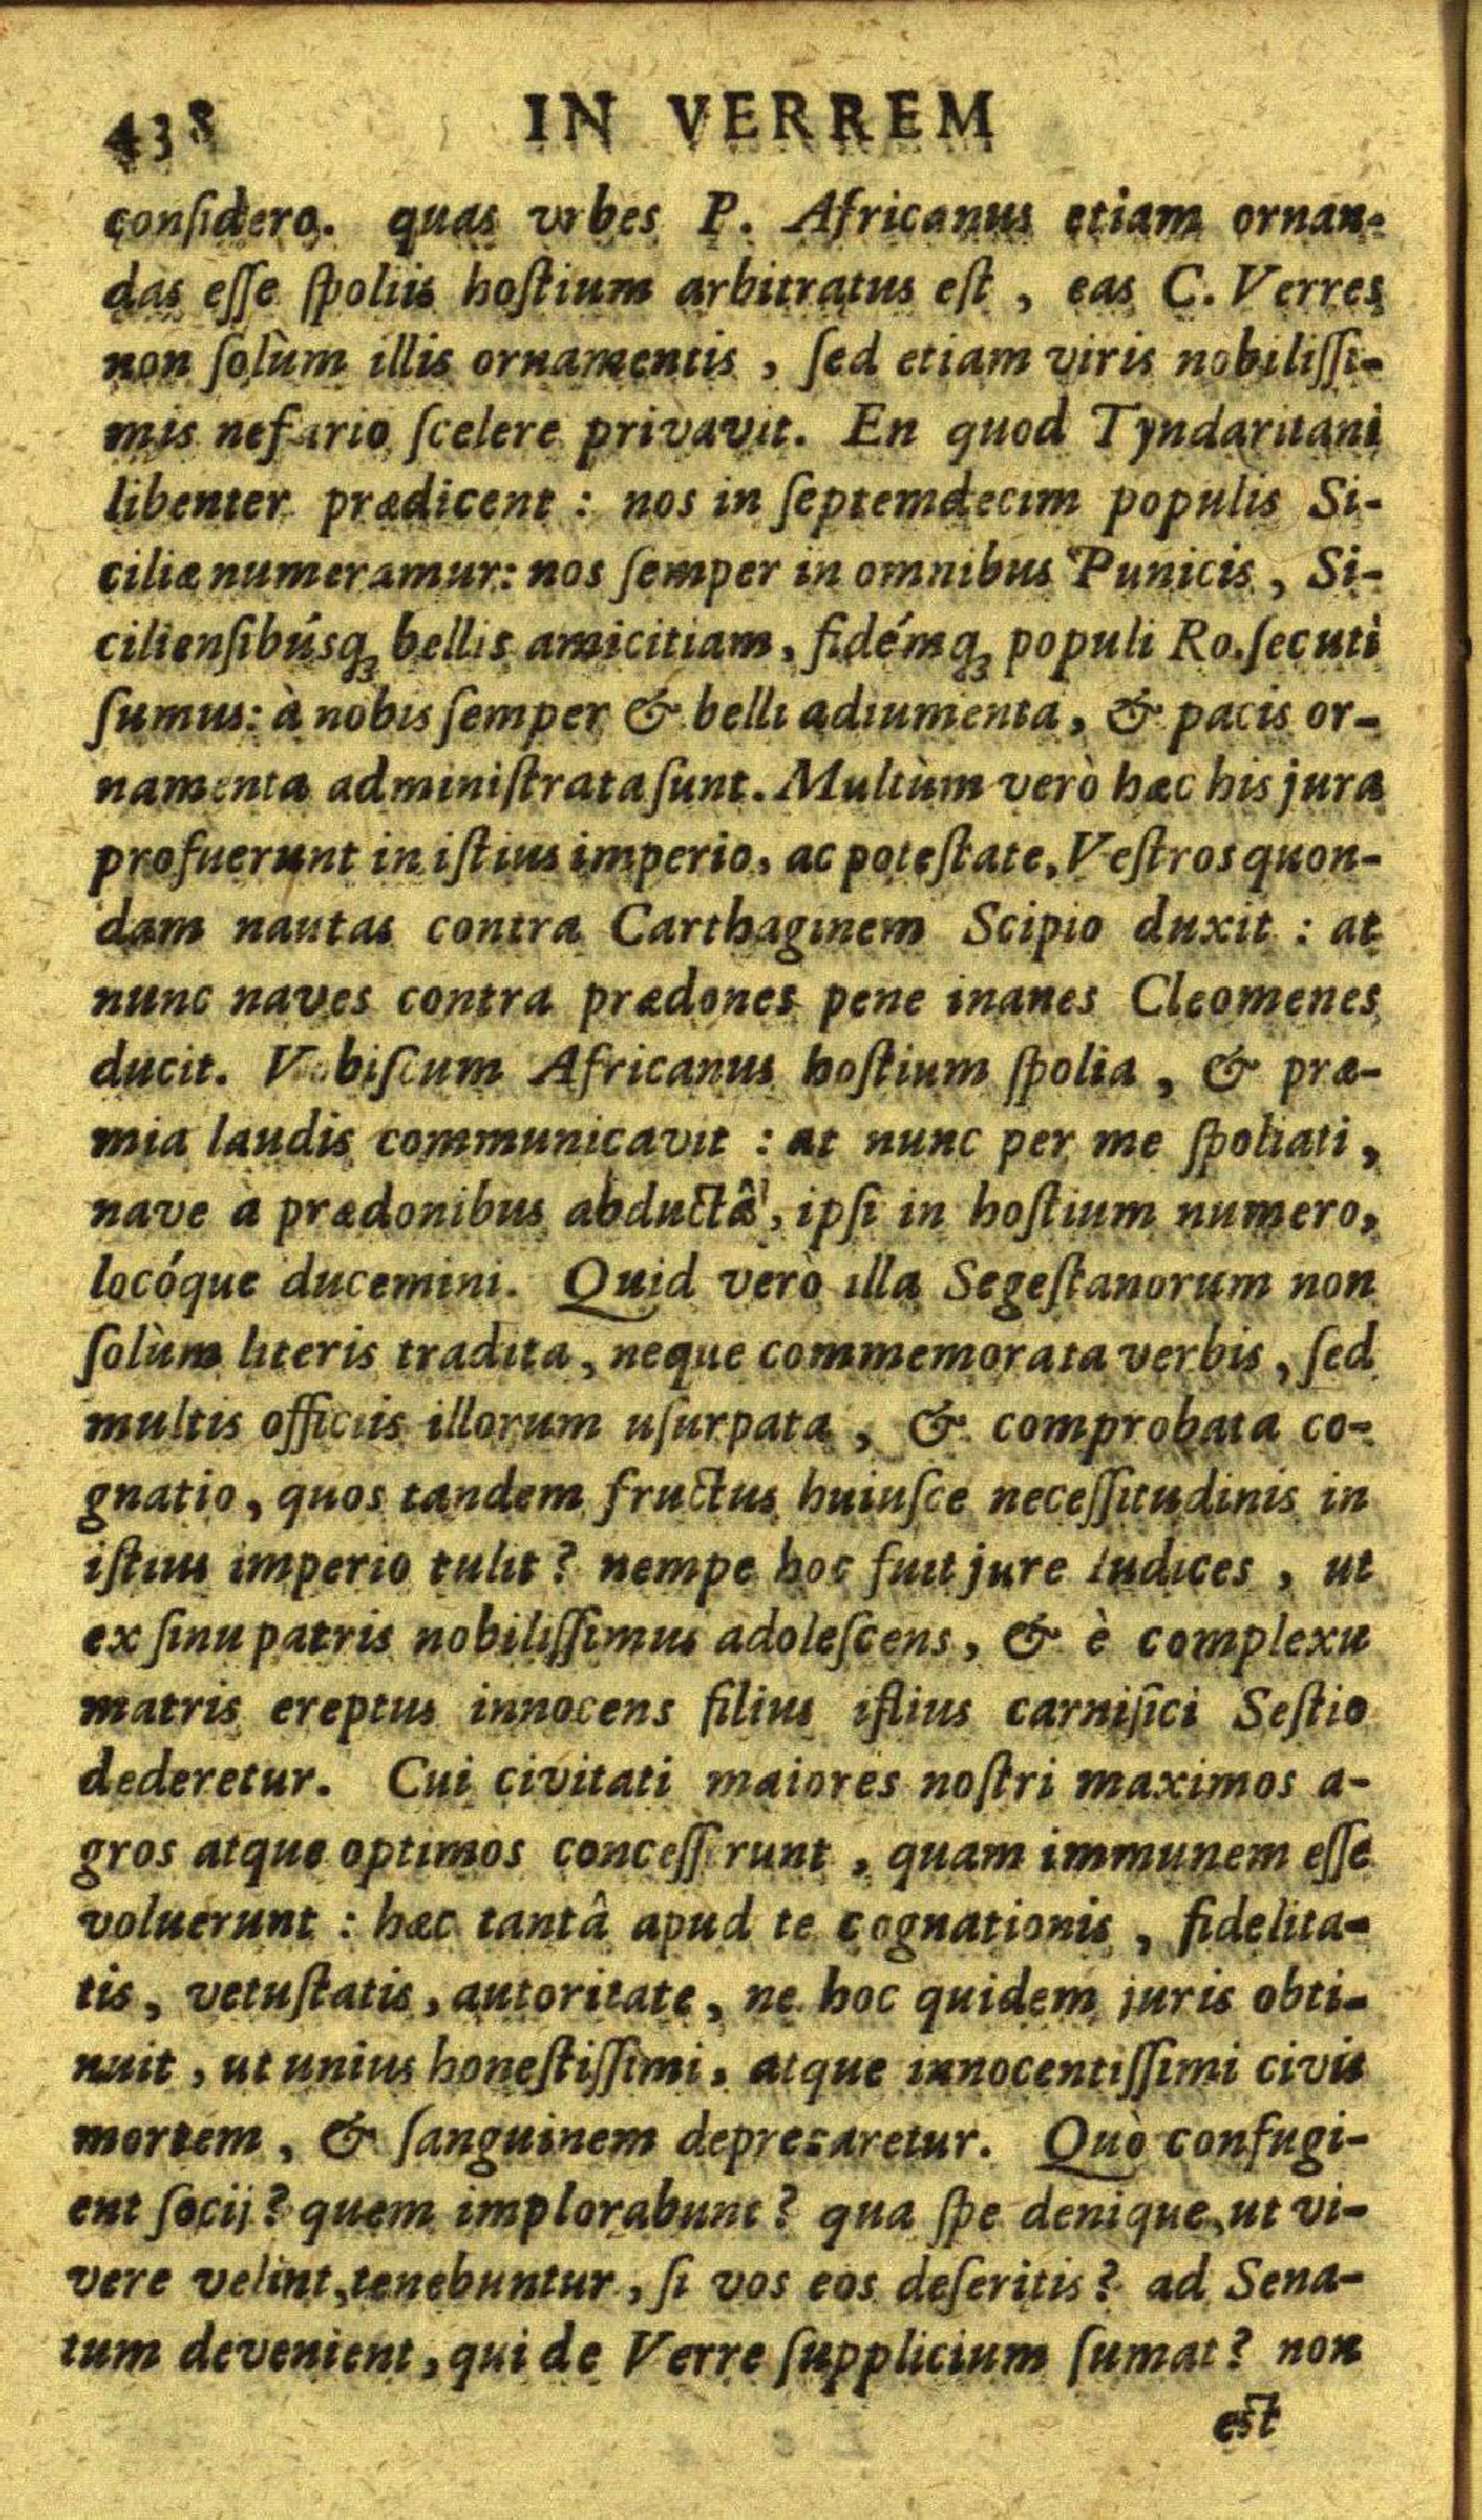 438 IN VERREM
conſidero. quas vrbes P. Africanus etiam ornan-
das eſſe ſpoliis hoſtium arbitratus eſt , eas C. Verres
non ſolùm illis ornamentis , ſed etiam viris nobiliſſi-
mis nefario ſcelere privavit. En quod Tyndaritani
libenter prædicent : nos in ſeptemdecim populis Si-
ciliæ numeramur: nos ſemper in omnibus Punicis , Si-
cilienſibúsq; bellis amicitiam, fidémq; populi Ro.ſecuti
ſumus: à nobis ſemper & belli adiumenta, & pacis or-
namenta adminiſtrata ſunt. Multùm verò hæc his jura
profuerunt in iſtius imperio, ac poteſtate, Veſtros quon-
dam nautas contra Carthaginem Scipio duxit : at
nunc naves contra prædones pene inanes Cleomenes
ducit. Vobiſcum Africanus hoſtium ſpolia , & præ-
mia laudis communicavit : at nunc per me ſpoliati ,
nave à prædonibus abductâ , ipſi in hoſtium numero,
locóque ducemini. Quid verò illa Segeſtanorum non
ſolùm literis tradita , neque commemorata verbis , ſed
multis officiis illorum uſurpata , & comprobata co-
gnatio, quos tandem fructus huiuſce neceſſitudinis in
iſtius imperio tulit ? nempe hoc fuit jure Iudices , ut
ex ſinu patris nobiliſſimus adoleſcens, & è complexu
matris ereptus innocens filius iſtius carnifici Seſtio
dederetur. Cui civitati maiores noſtri maximos a-
gros atque optimos conceſſerunt , quam immunem eſſe
voluerunt : hæc tantâ apud te cognationis , fidelita-
tis, vetuſtatis, autoritate, ne hoc quidem juris obti-
nuit , ut unius honeſtiſſimi, atque innocentiſſimi civis
mortem , & ſanguinem deprecaretur. Quò confugi-
ent ſocij ? quem implorabunt ? qua ſpe denique, ut vi-
vere velint, tenebuntur , ſi vos eos deſeritis ? ad Sena-
tum devenient , qui de Verre ſupplicium ſumat ? non
eſt